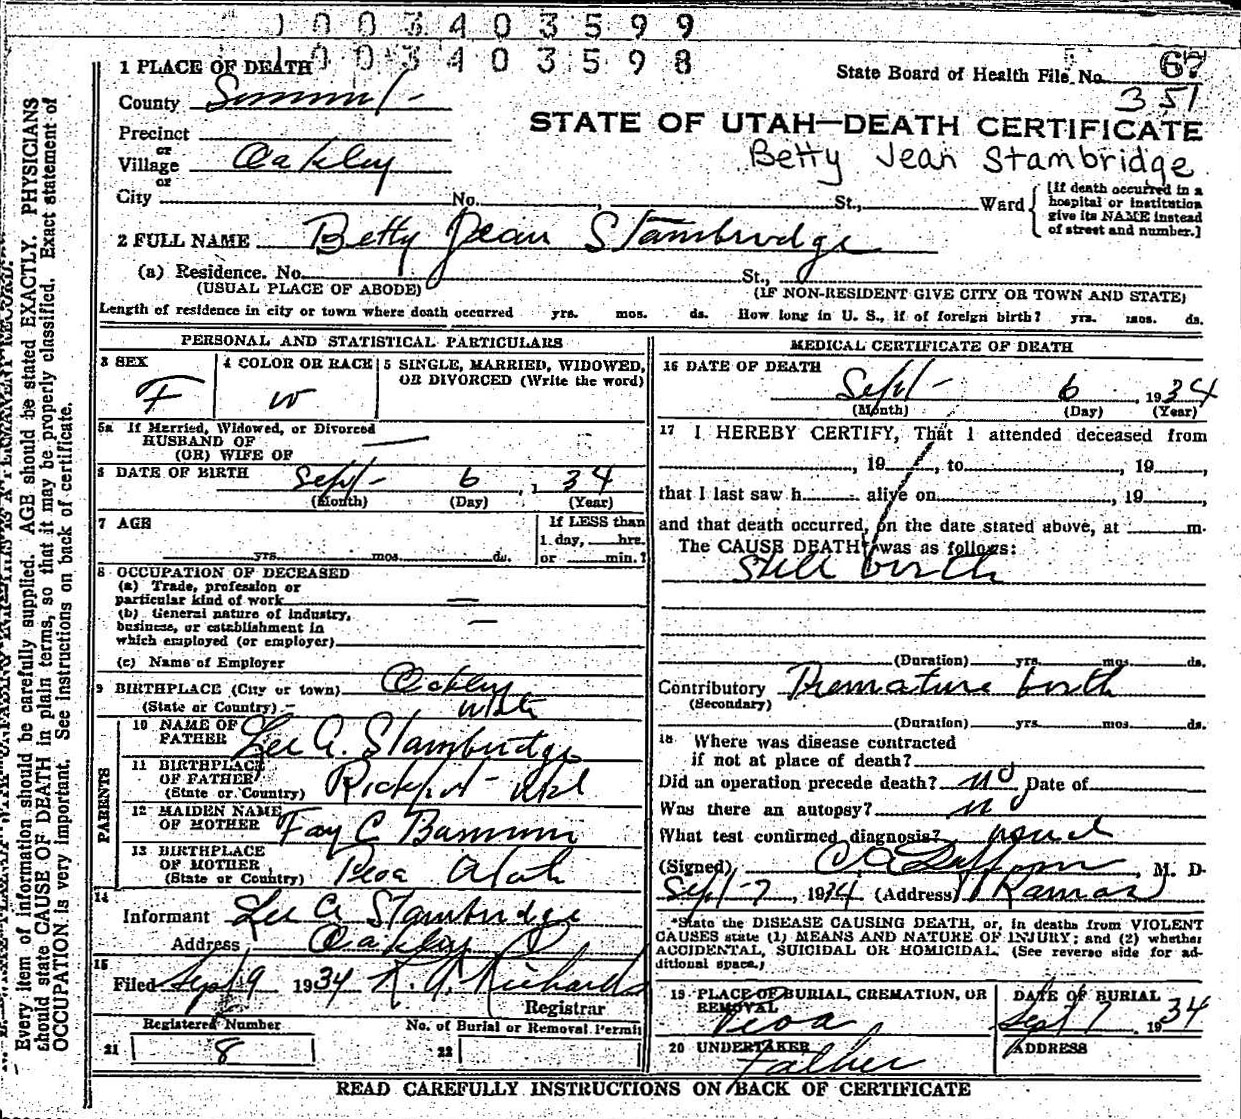 1003403599
1003403598
State Board of Health File No. 67
351
1 PLACE OF DEATH
County Summit
STATE OF UTAH—DEATH CERTIFICATE
Precinct
or
Village Oakley
or
Betty Jean Stambridge
City No. , St., Ward
[If death occurred in a
hospital or institution
give its NAME instead
of street and number.]
2 FULL NAME Betty Jean Stambridge
(a) Residence. No. St.,
(USUAL PLACE OF ABODE) (IF NON-RESIDENT GIVE CITY OR TOWN AND STATE)
Length of residence in city or town where death occurred yrs. mos. ds. How long in U. S., if of foreign birth? yrs. mos. ds.
PERSONAL AND STATISTICAL PARTICULARS
3 SEX
F
4 COLOR OR RACE
W
5 SINGLE, MARRIED, WIDOWED,
OR DIVORCED (Write the word)
5a If Married, Widowed, or Divorced
HUSBAND OF —
(OR) WIFE OF
6 DATE OF BIRTH Sept- 6, 1 34
(Month) (Day) (Year)
7 AGE
yrs. mos. ds.
If LESS than
1 day, hrs.
or min.?
8 OCCUPATION OF DECEASED
(a) Trade, profession or
particular kind of work —
(b) General nature of industry,
business, or establishment in
which employed (or employer) —
(c) Name of Employer
9 BIRTHPLACE (City or town) Oakley
(State or Country) - Utah
PARENTS
10 NAME OF
FATHER Lee A. Stambridge
11 BIRTHPLACE
OF FATHER
(State or Country) Rockport Utah
12 MAIDEN NAME
OF MOTHER Fay C
13 BIRTHPLACE
OF MOTHER
(State or Country) Peoa Utah
14
Informant Lee A Stambridge
Address Oakley
15
Filed Sept 9 1934 Richards
Registrar
Registered Number
21 8
No. of Burial or Removal Permit
22
MEDICAL CERTIFICATE OF DEATH
16 DATE OF DEATH
Sept- 6, 1934
(Month) (Day) (Year)
17 I HEREBY CERTIFY, That I attended deceased from
, 19 , to , 19 ,
that I last saw h alive on , 19 ,
and that death occurred, on the date stated above, at m.
The CAUSE DEATH* was as follows:
Still birth
(Duration) yrs. mos. ds.
Contributory Premature birth
(Secondary)
(Duration) yrs. mos. ds.
18 Where was disease contracted
if not at place of death?
Did an operation precede death? no Date of
Was there an autopsy? no
What test confirmed diagnosis?
(Signed) , M. D.
Sept-7, 1934 (Address) Kamas
*State the DISEASE CAUSING DEATH, or, in deaths from VIOLENT
CAUSES state (1) MEANS AND NATURE OF INJURY; and (2) whether
ACCIDENTAL, SUICIDAL OR HOMICIDAL. (See reverse side for ad-
ditional space.)
19 PLACE OF BURIAL, CREMATION, OR
REMOVAL
Peoa
DATE OF BURIAL
Sept 7, 1934
20 UNDERTAKER
Father
ADDRESS
READ CAREFULLY INSTRUCTIONS ON BACK OF CERTIFICATE
Every item of information should be carefully supplied. AGE should be stated EXACTLY. PHYSICIANS
should state CAUSE OF DEATH in plain terms, so that it may be properly classified. Exact statement of
OCCUPATION is very important. See instructions on back of certificate.